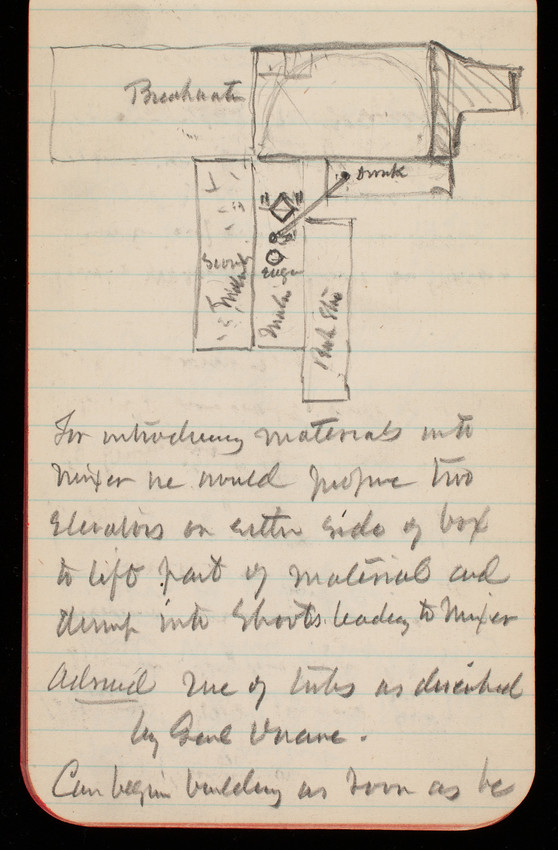 Breakwater
Engn
For introducing materials into
Mixer we would propose two
Elevators on either side of box
to lift part of material and
dump into Shoots leading to Mixer
use of tubs as described
by Genl
Can begin building as soon as be